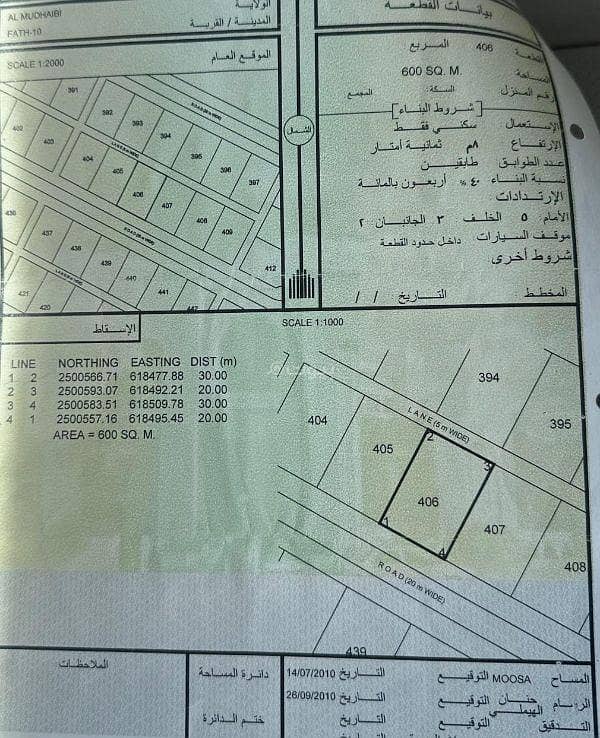 بيانات القطعة
الولاية
AL MUDHAIBI
المدينة / القرية
FATH-10
الموقع العام
SCALE 1:2000
406 المربع
المساحة 600 SQ. M.
رقم المنزل السكة: المجمع
شروط البناء
الإستعمال سكني فقط
الإرتفاع ٨م ثمانية أمتار
عدد الطوابق طابقين
نسبة البناء ٤٠% أربعون بالمائة
الإرتدادات
الأمام ٥ الخلف ٣ الجانبان ٢
موقف السيارات داخل حدود القطعة
شروط أخرى
المخطط التاريخ / /
الشمال
391
392
393
394
395
396
397
402
403
404
405
406
407
408
409
412
436
437
438
439
440
441
421
420
الإسقاط
SCALE 1:1000
LINE NORTHING EASTING DIST (m)
1 2 2500566.71 618477.88 30.00
2 3 2500593.07 618492.21 20.00
3 4 2500583.51 618509.78 30.00
4 1 2500557.16 618495.45 20.00
AREA = 600 SQ. M.
394
395
404
405
LANE (5 m WIDE)
2
3
406
407
1
4
408
ROAD (20 m WIDE)
439
الملاحظات
دائرة المساحة
ختم الدائرة
المساح MOOSA التوقيع التاريخ 14/07/2010
الرسام حنان الهيملي التوقيع التاريخ 26/09/2010
التدقيق التوقيع التاريخ